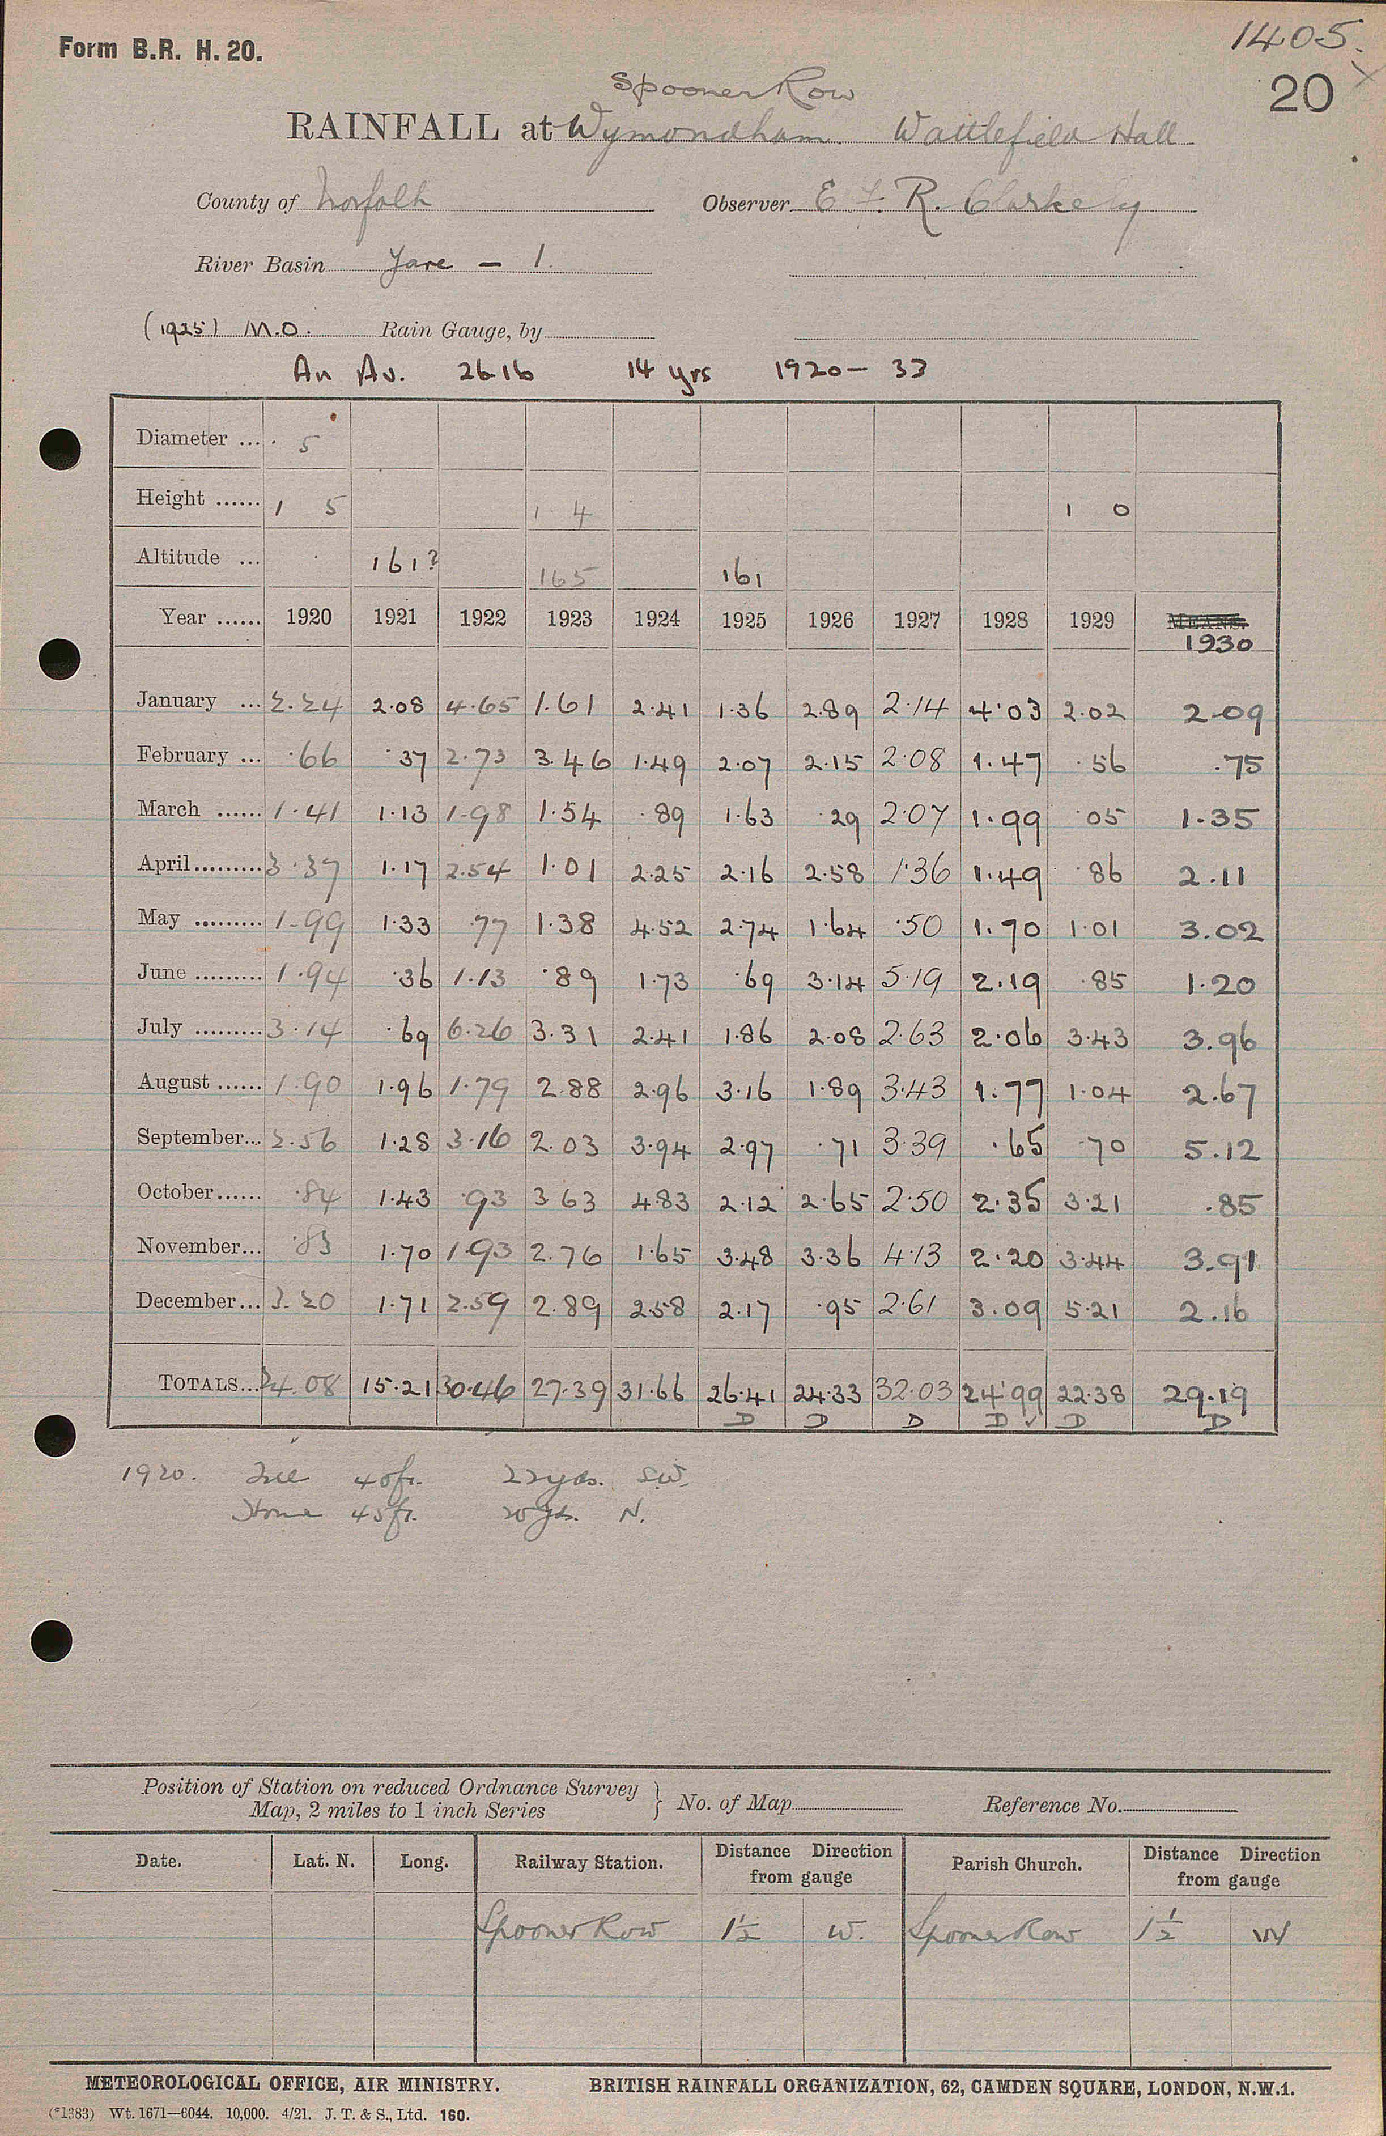 Form B.R. H. 20.
1405.
20
Spooner Row
RAINFALL at Wymondham. Wattlefield Hall
County of Norfolk Observer E. F. R. Clarke
River Basin Yare – 1.
(1925) M.O. Rain Gauge, by
An Av. 26.16 14 yrs 1920 – 33
Diameter ... 5
Height ...... 1 5 1 4 1 0
Altitude ... 161? 165 161
Year ...... 1920 1921 1922 1923 1924 1925 1926 1927 1928 1929 MEANS. 1930
January ... 2.24 2.08 4.65 1.61 2.41 1.36 2.89 2.14 4.03 2.02 2.09
February ... .66 .37 2.73 3.46 1.49 2.07 2.15 2.08 1.47 .56 .75
March ...... 1.41 1.13 1.98 1.54 .89 1.63 .29 2.07 1.99 .05 1.35
April ......... 3.37 1.17 2.54 1.01 2.25 2.16 2.58 1.36 1.49 .86 2.11
May ......... 1.99 1.33 .77 1.38 4.52 2.74 1.64 .50 1.70 1.01 3.02
June ......... 1.94 .36 1.13 .89 1.73 .69 3.14 5.19 2.19 .85 1.20
July ......... 3.14 .69 6.26 3.31 2.41 1.86 2.08 2.63 2.06 3.43 3.96
August ...... 1.90 1.96 1.79 2.88 2.96 3.16 1.89 3.43 1.77 1.04 2.67
September... 2.56 1.28 3.16 2.03 3.94 2.97 .71 3.39 .65 .70 5.12
October...... .84 1.43 .93 3.63 4.83 2.12 2.65 2.50 2.35 3.21 .85
November... .83 1.70 1.93 2.76 1.65 3.48 3.36 4.13 2.20 3.44 3.91
December... 3.20 1.71 2.59 2.89 2.58 2.17 .95 2.61 3.09 5.21 2.16
TOTALS... 24.08 15.21 30.46 27.39 31.66 26.41 24.33 32.03 24.99 22.38 29.19
D D D D ✓ D D
1920. Tree 40ft. 22yds. SW.
Home 45ft. 20yds. N.
Position of Station on reduced Ordnance Survey Map, 2 miles to 1 inch Series } No. of Map Reference No.
Date. Lat. N. Long. Railway Station. Distance Direction from gauge Parish Church. Distance Direction from gauge
Spooner Row 1½ W. Spooner Row 1½ W
METEOROLOGICAL OFFICE, AIR MINISTRY. BRITISH RAINFALL ORGANIZATION, 62, CAMDEN SQUARE, LONDON, N.W.1.
(*1383) Wt. 1671—6044. 10,000. 4/21. J. T. & S., Ltd. 160.